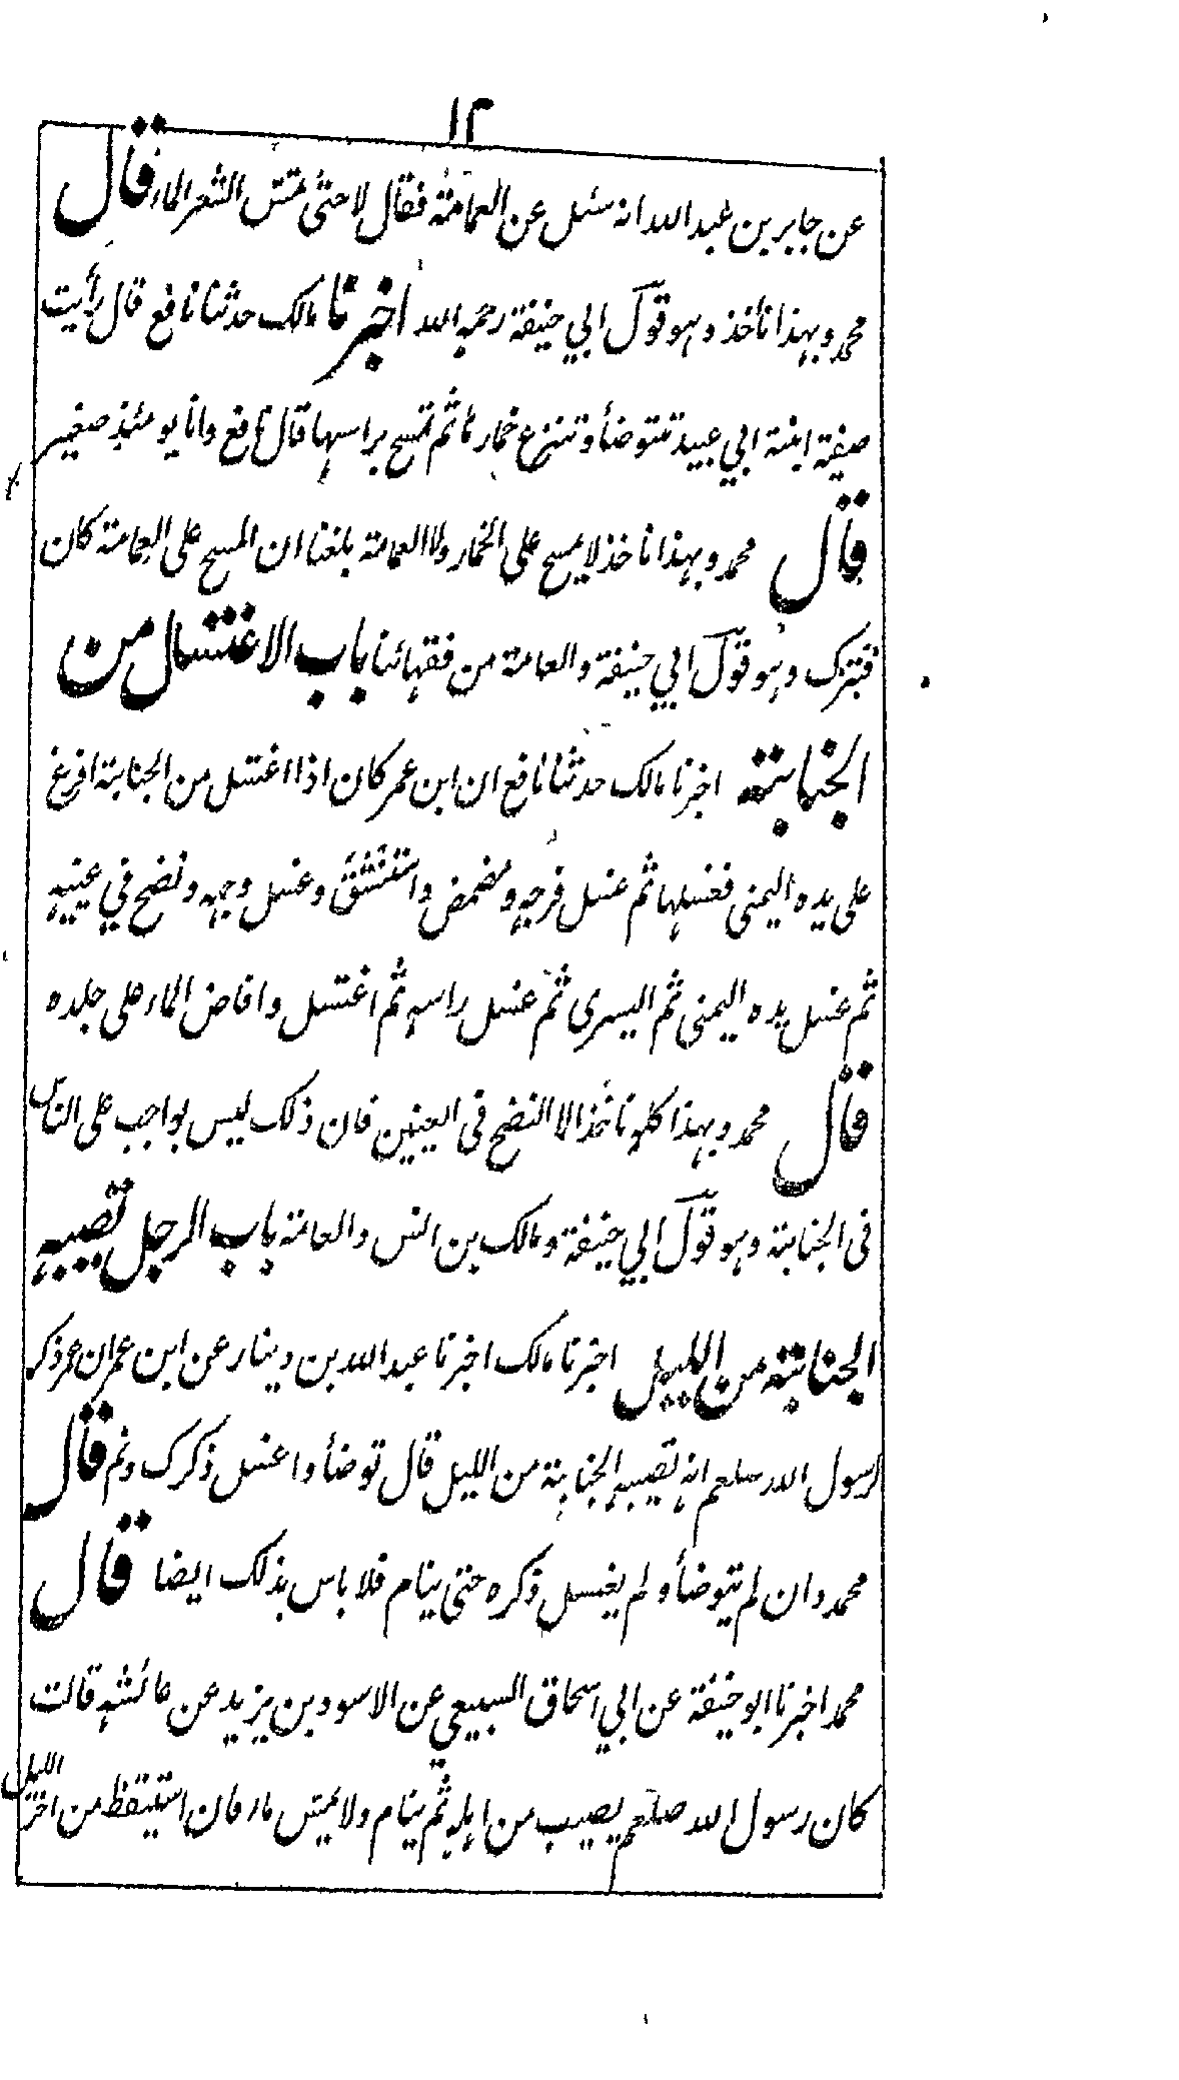 ١٢
عن جابر بن عبد الله انه سئل عن العمامة فقال لا حتى تمس الشعر الماء قال
محمد وبهذا نأخذ وهو قول ابي حنيفة رحمه الله اخبرنا مالك حدثنا نافع قال رأيت
صفية ابنة ابي عبيد تتوضأ وتنزع خمارها ثم تمسح براسها قال نافع وانا يومئذ صغير
قال محمد وبهذا ناخذ لا يمسح على الخمار ولا العمامة بلغنا ان المسح على العمامة كان
فترك وهو قول ابي حنيفة والعامة من فقهائنا باب الاغتسال من
الجنابة اخبرنا مالك حدثنا نافع ان ابن عمر كان اذا اغتسل من الجنابة افرغ
على يده اليمنى فغسلها ثم غسل فرجه ومضمض واستنشق وغسل وجهه ونضح في عينيه
ثم غسل يده اليمنى ثم اليسرى ثم غسل راسه ثم اغتسل وافاض الماء على جلده
قال محمد وبهذا كله ناخذ الا النضح فى العينين فان ذلك ليس بواجب على الناس
فى الجنابة وهو قول ابي حنيفة ومالك بن انس والعامة باب الرجل تصيبه
الجنابة من الليل اخبرنا مالك اخبرنا عبد الله بن دينار عن ابن عمر ان عمر ذكر
لرسول الله صلعم انه تصيبه الجنابة من الليل قال توضأ واغسل ذكرك ونم قال
محمد وان لم يتوضأ ولم يغسل ذكره حتى ينام فلا باس بذلك ايضا قال
محمد اخبرنا ابو حنيفة عن ابي اسحاق السبيعي عن الاسود بن يزيد عن عائشه قالت
كان رسول الله صلعم يصيب من اهله ثم ينام ولا يمس ماء فان استيقظ من اخر الليل